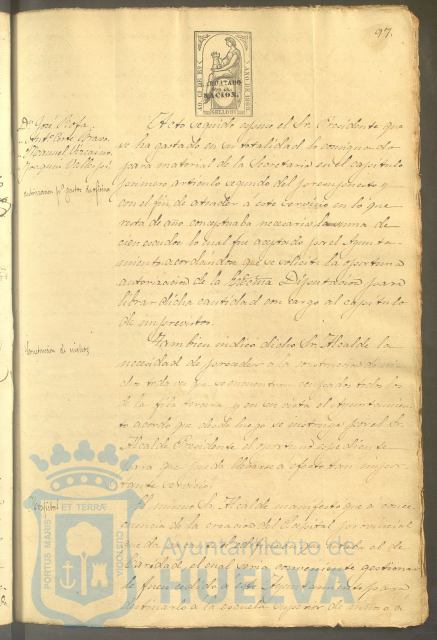 97.
HABILITADO
POR LA
NACION.
D.n José Riofa
" Manuel Vizcaino
" Joaquin Vallejo
autorizacion p.a gastos de oficina
Acto seguido espuso el Sr. Presidente que
se ha gastado en su totalidad lo consignado
para material de la Secretaria en el capitulo
primero articulo segundo del presupuesto y
con el fin de atender a este servicio en lo que
resta de año conceptuaba necesaria la suma de
cien escudos lo cual fue aceptado por el Ayunta-
miento acordandose que se solicite la oportuna
autorizacion de la Diputacion para
librar dicha cantidad con cargo al capitulo
de imprevistos.
Construccion de nichos
Tambien indicó dicho Sr. Alcalde la
necesidad de proceder a la construccion de ni-
chos toda vez que se encuentran ocupados todos los
de la fila tercera y en su vista el Ayuntamien-
to acordó que desde luego se instruya por el Sr.
Alcalde Presidente el oportuno espediente
para que pueda llevarse a efecto tan impor-
tante servicio.
Hospital
El mismo Sr. Alcalde manifestó que a conse-
cuencia de la creacion del Hospital provincial
Caridad, el cual seria conveniente gestionar
le fuera cedido a este Ayuntamiento para
destinarlo a la escuela superior de niños o
PORTUS MARIS ET TERRAE CUSTODIA
Ayuntamiento de
HUELVA